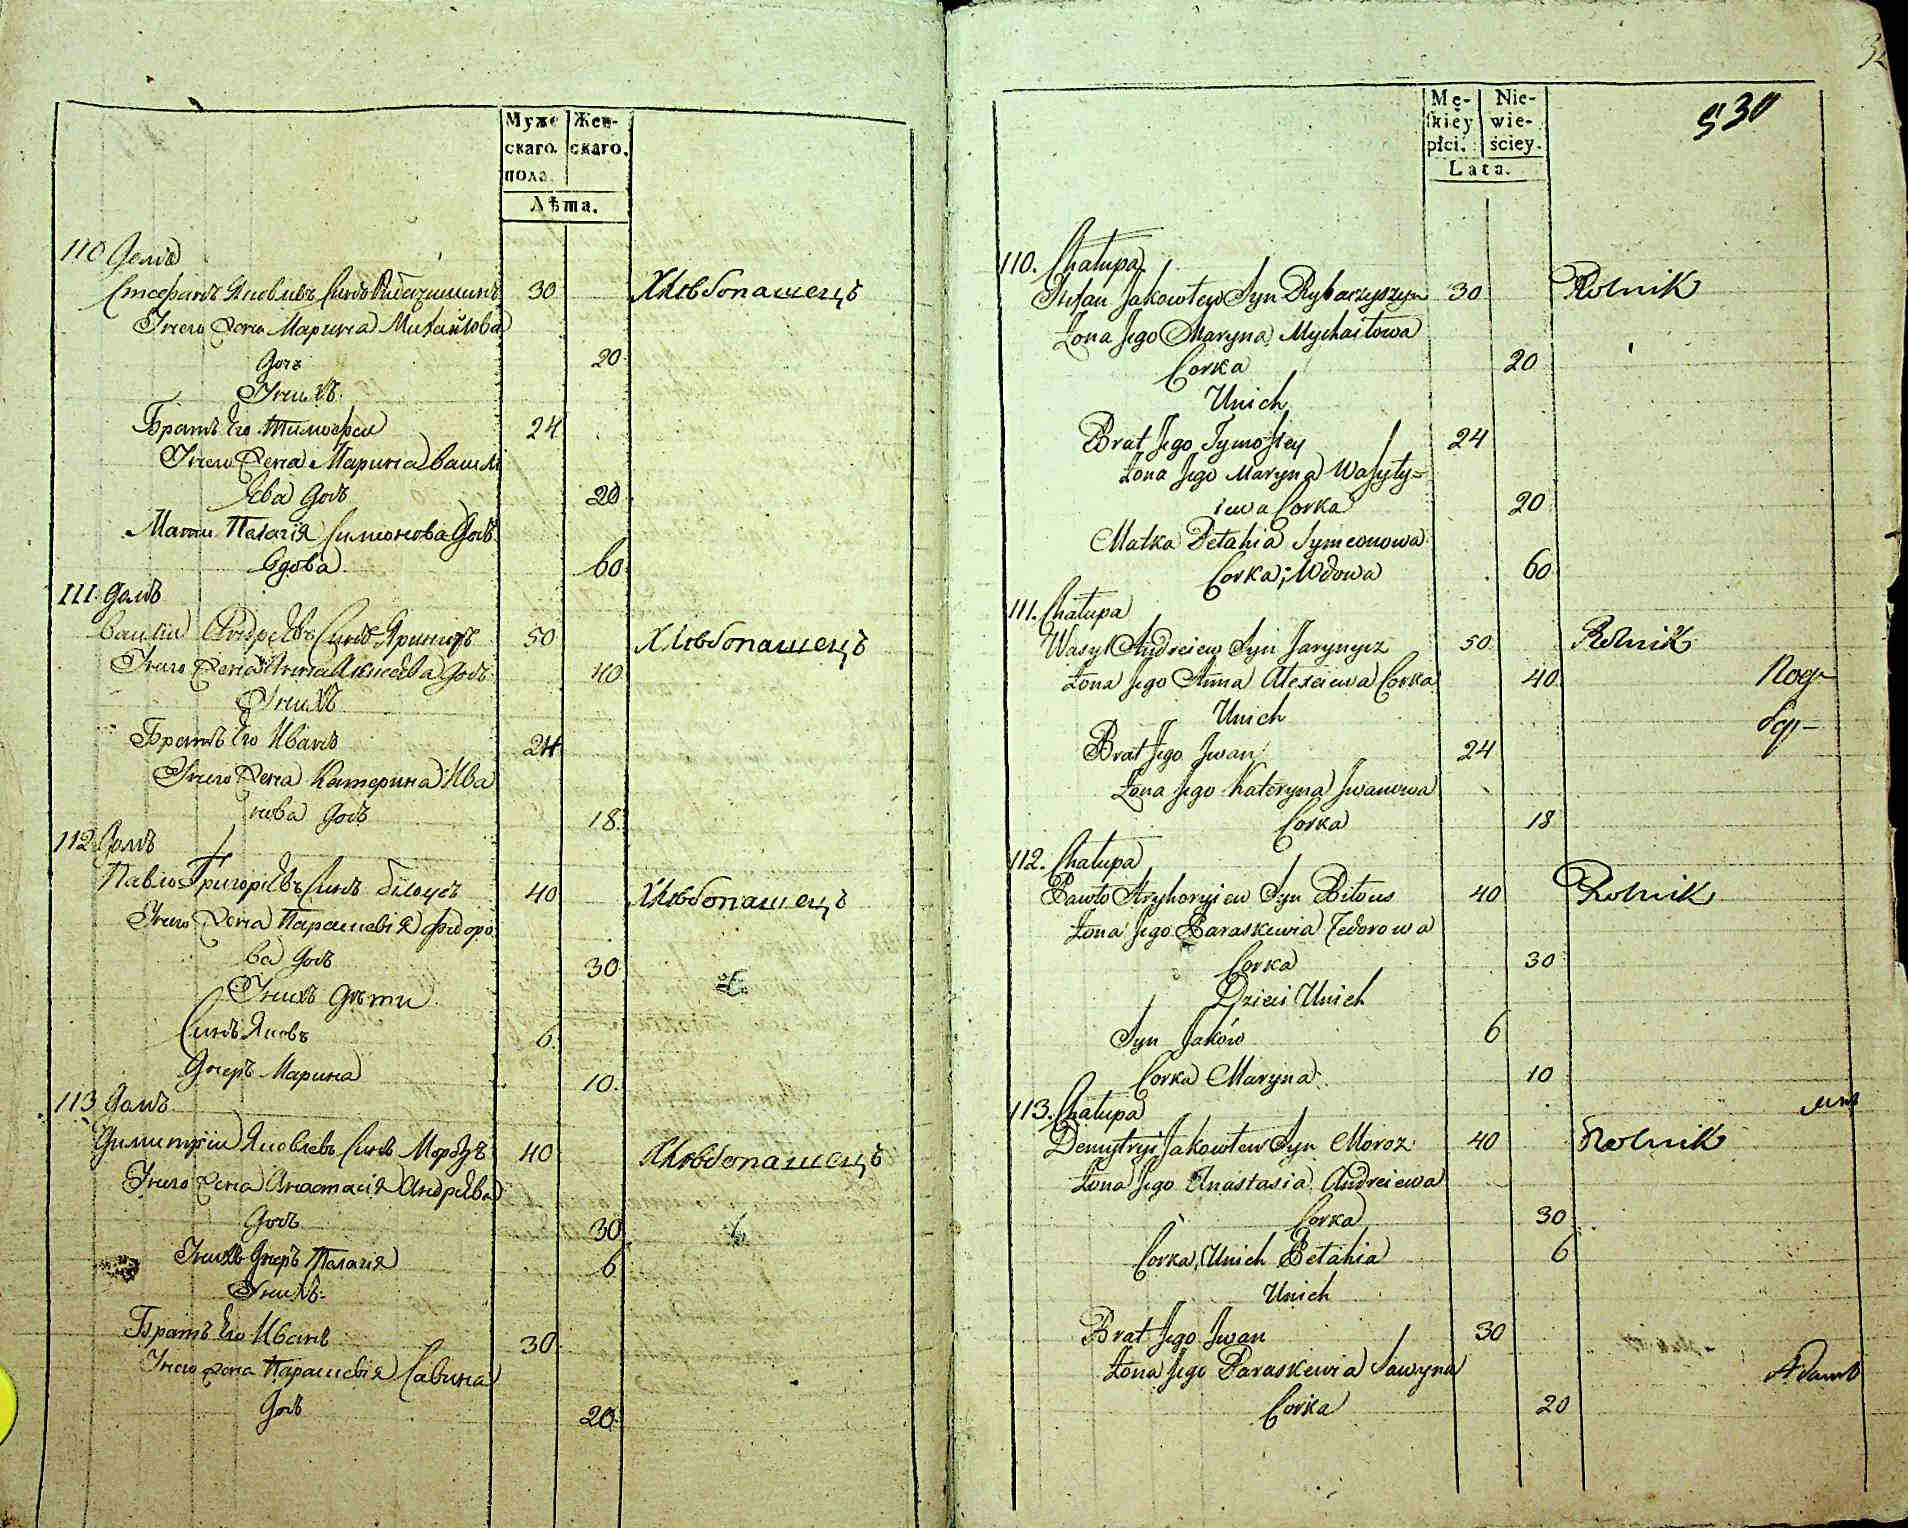 Муже
скаго.
пола.
Жен-
скаго.
Лѣта.
110 Домъ
Стефанъ Яковлевъ Синъ Рибачишинъ 30 Хлѣбопашецъ
Унего Жена Марина Михайлова
Дочь 20
Унихъ
Братъ Его Тимофеи 24
Унего Жена Марина Васили
Ева Дочь 20
Мати Палагія Симонова Дочь
Вдова 60
111 Домъ
Васили Андрѣевъ Синъ Яриничъ 50 Хлѣбопашецъ
Унего Жена Анна Алексѣева Дочь 40
Унихъ
Братъ Его Иванъ 24
Унего Жена Катерина Ива
нова Дочь 18
112 Домъ
Павло Григорѣевъ Синъ Білоусъ 40 Хлѣбопашецъ
Унего Жена Параскевія Фидоро
ва Дочь 30
Унихъ Дѣти
Синъ Яковъ 6
Дочеръ Марина 10
113 Домъ
Димитріи Яковлевъ Синъ Морозъ 40 Хлѣбопашецъ
Унего Жена Анастасія Андрѣева
Дочь 30
Унихъ Дочеръ Палагія 6
Унихъ
Братъ Его Иванъ 30
Унего Жена Параскевія Савина
Дочь 20
Mę-
skiey
płci.
Nie-
wie-
ściey.
Lata.
530
110. Chałupa
Stefan Jakowlew Syn Rybaczyszyn 30 Rolnik
Żona Jego Maryna Mychaiłowa
Corka 20
Unich
Brat Jego Tymofiey 24
Żona Jego Maryna Wasyly-
iewa Corka 20
Matka Pełahia Symeonowa
Corka, Wdowa 60
111. Chałupa
Wasyl Andreiew Syn Jarynycz 50 Rolnik
Żona Jego Anna Alexeiewa Corka 40
Unich
Brat Jego Jwan 24
Żona Jego Kateryna Jwanowa
Corka 18
112. Chałupa
Pawło Hryhoryiew Syn Biłous 40 Rolnik
Żona Jego Paraskewia Fedorowa
Corka 30
Dzieci Unich
Syn Jaków 6
Corka Maryna 10
113. Chałupa
Demytryi Jakowlew Syn Moroz 40 Rolnik
Żona Jego Anastasia Andreiewa
Corka 30
Corka, Unich Pełahia 6
Unich
Brat Jego Jwan 30
Żona Jego Paraskewia Sawyna
Corka 20